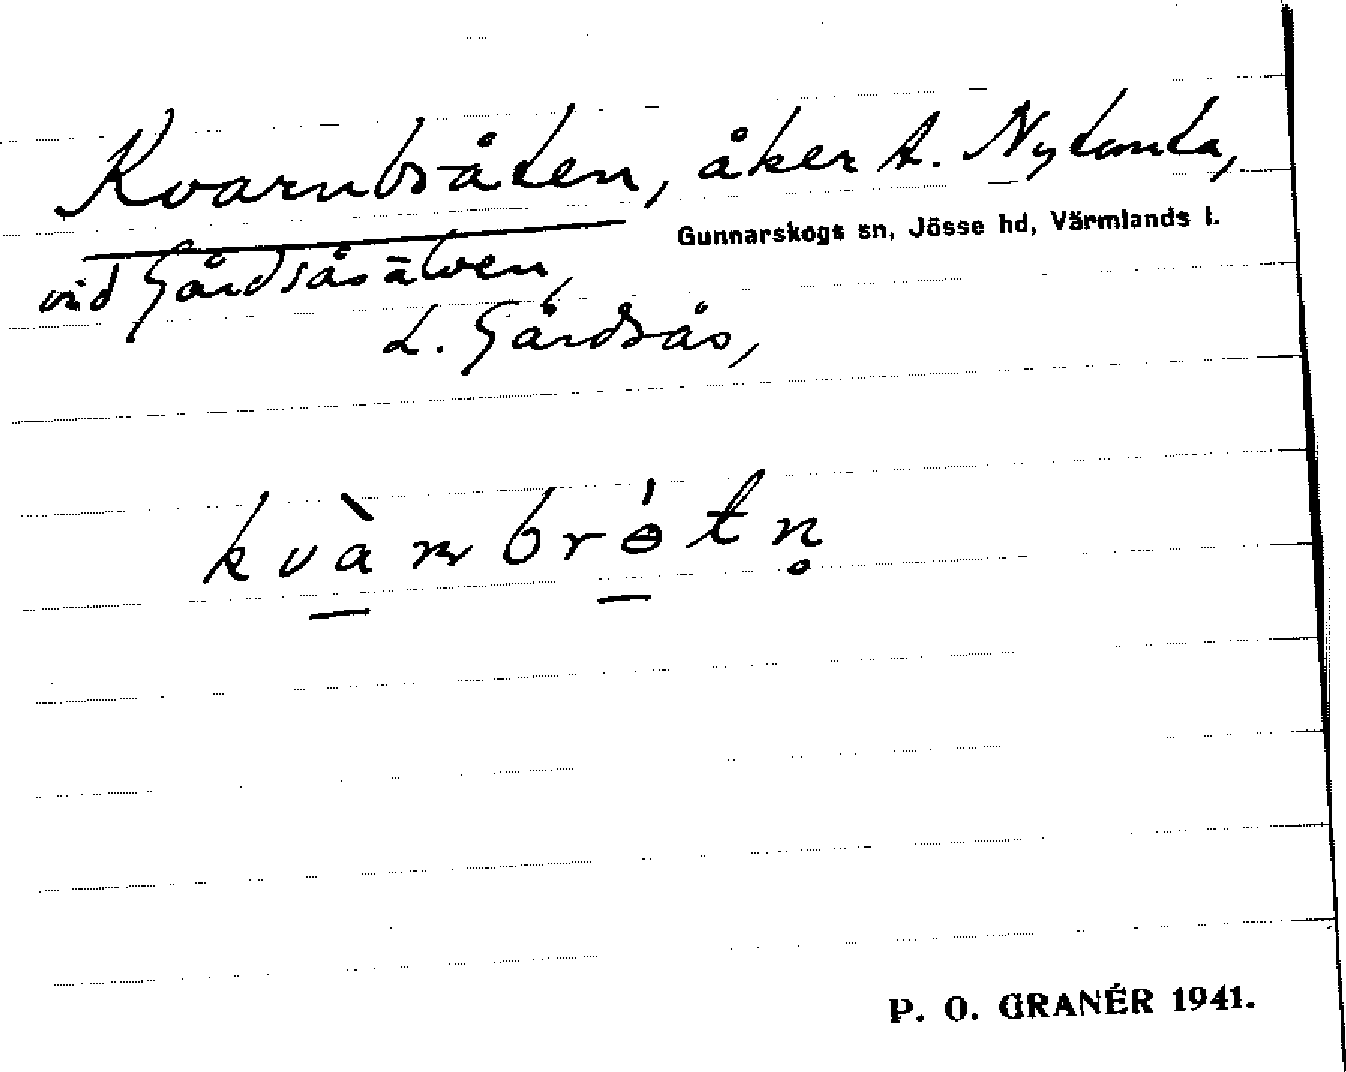 Kvarnbråten, åker t. Nylanda,
Gunnarskogs sn, Jösse hd, Värmlands l.
vid Gårdsåsälven,
L. Gårdsås,
kvàrnbrǿtn̥
P. O. GRANÉR 1941.